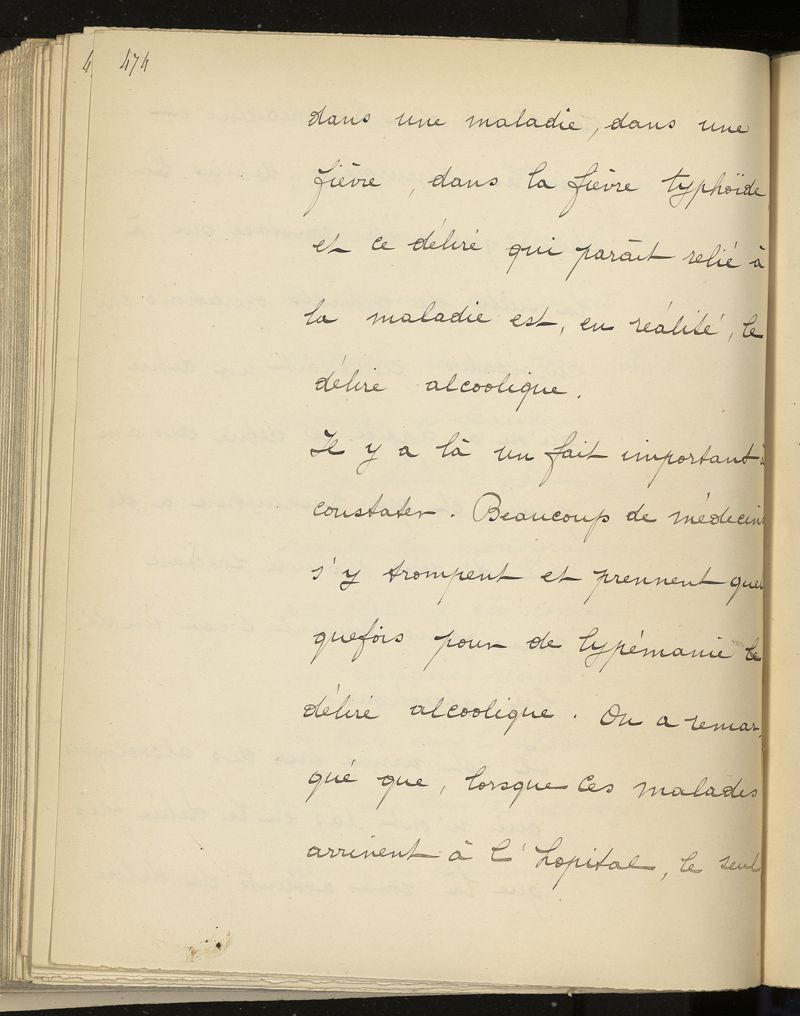 474
dans une maladie, dans une
fièvre, dans la fièvre typhoïde,
et ce délire qui parait relié à
la maladie est, en réalité, le
délire alcoolique.
Il y a là un fait important à
constater. Beaucoup de médecins
s'y trompent et prennent quel
quefois pour de lypémanie le
délire alcoolique. On a remar-
qué que, lorsque ces malades
arrivent à l'hopital, le seul